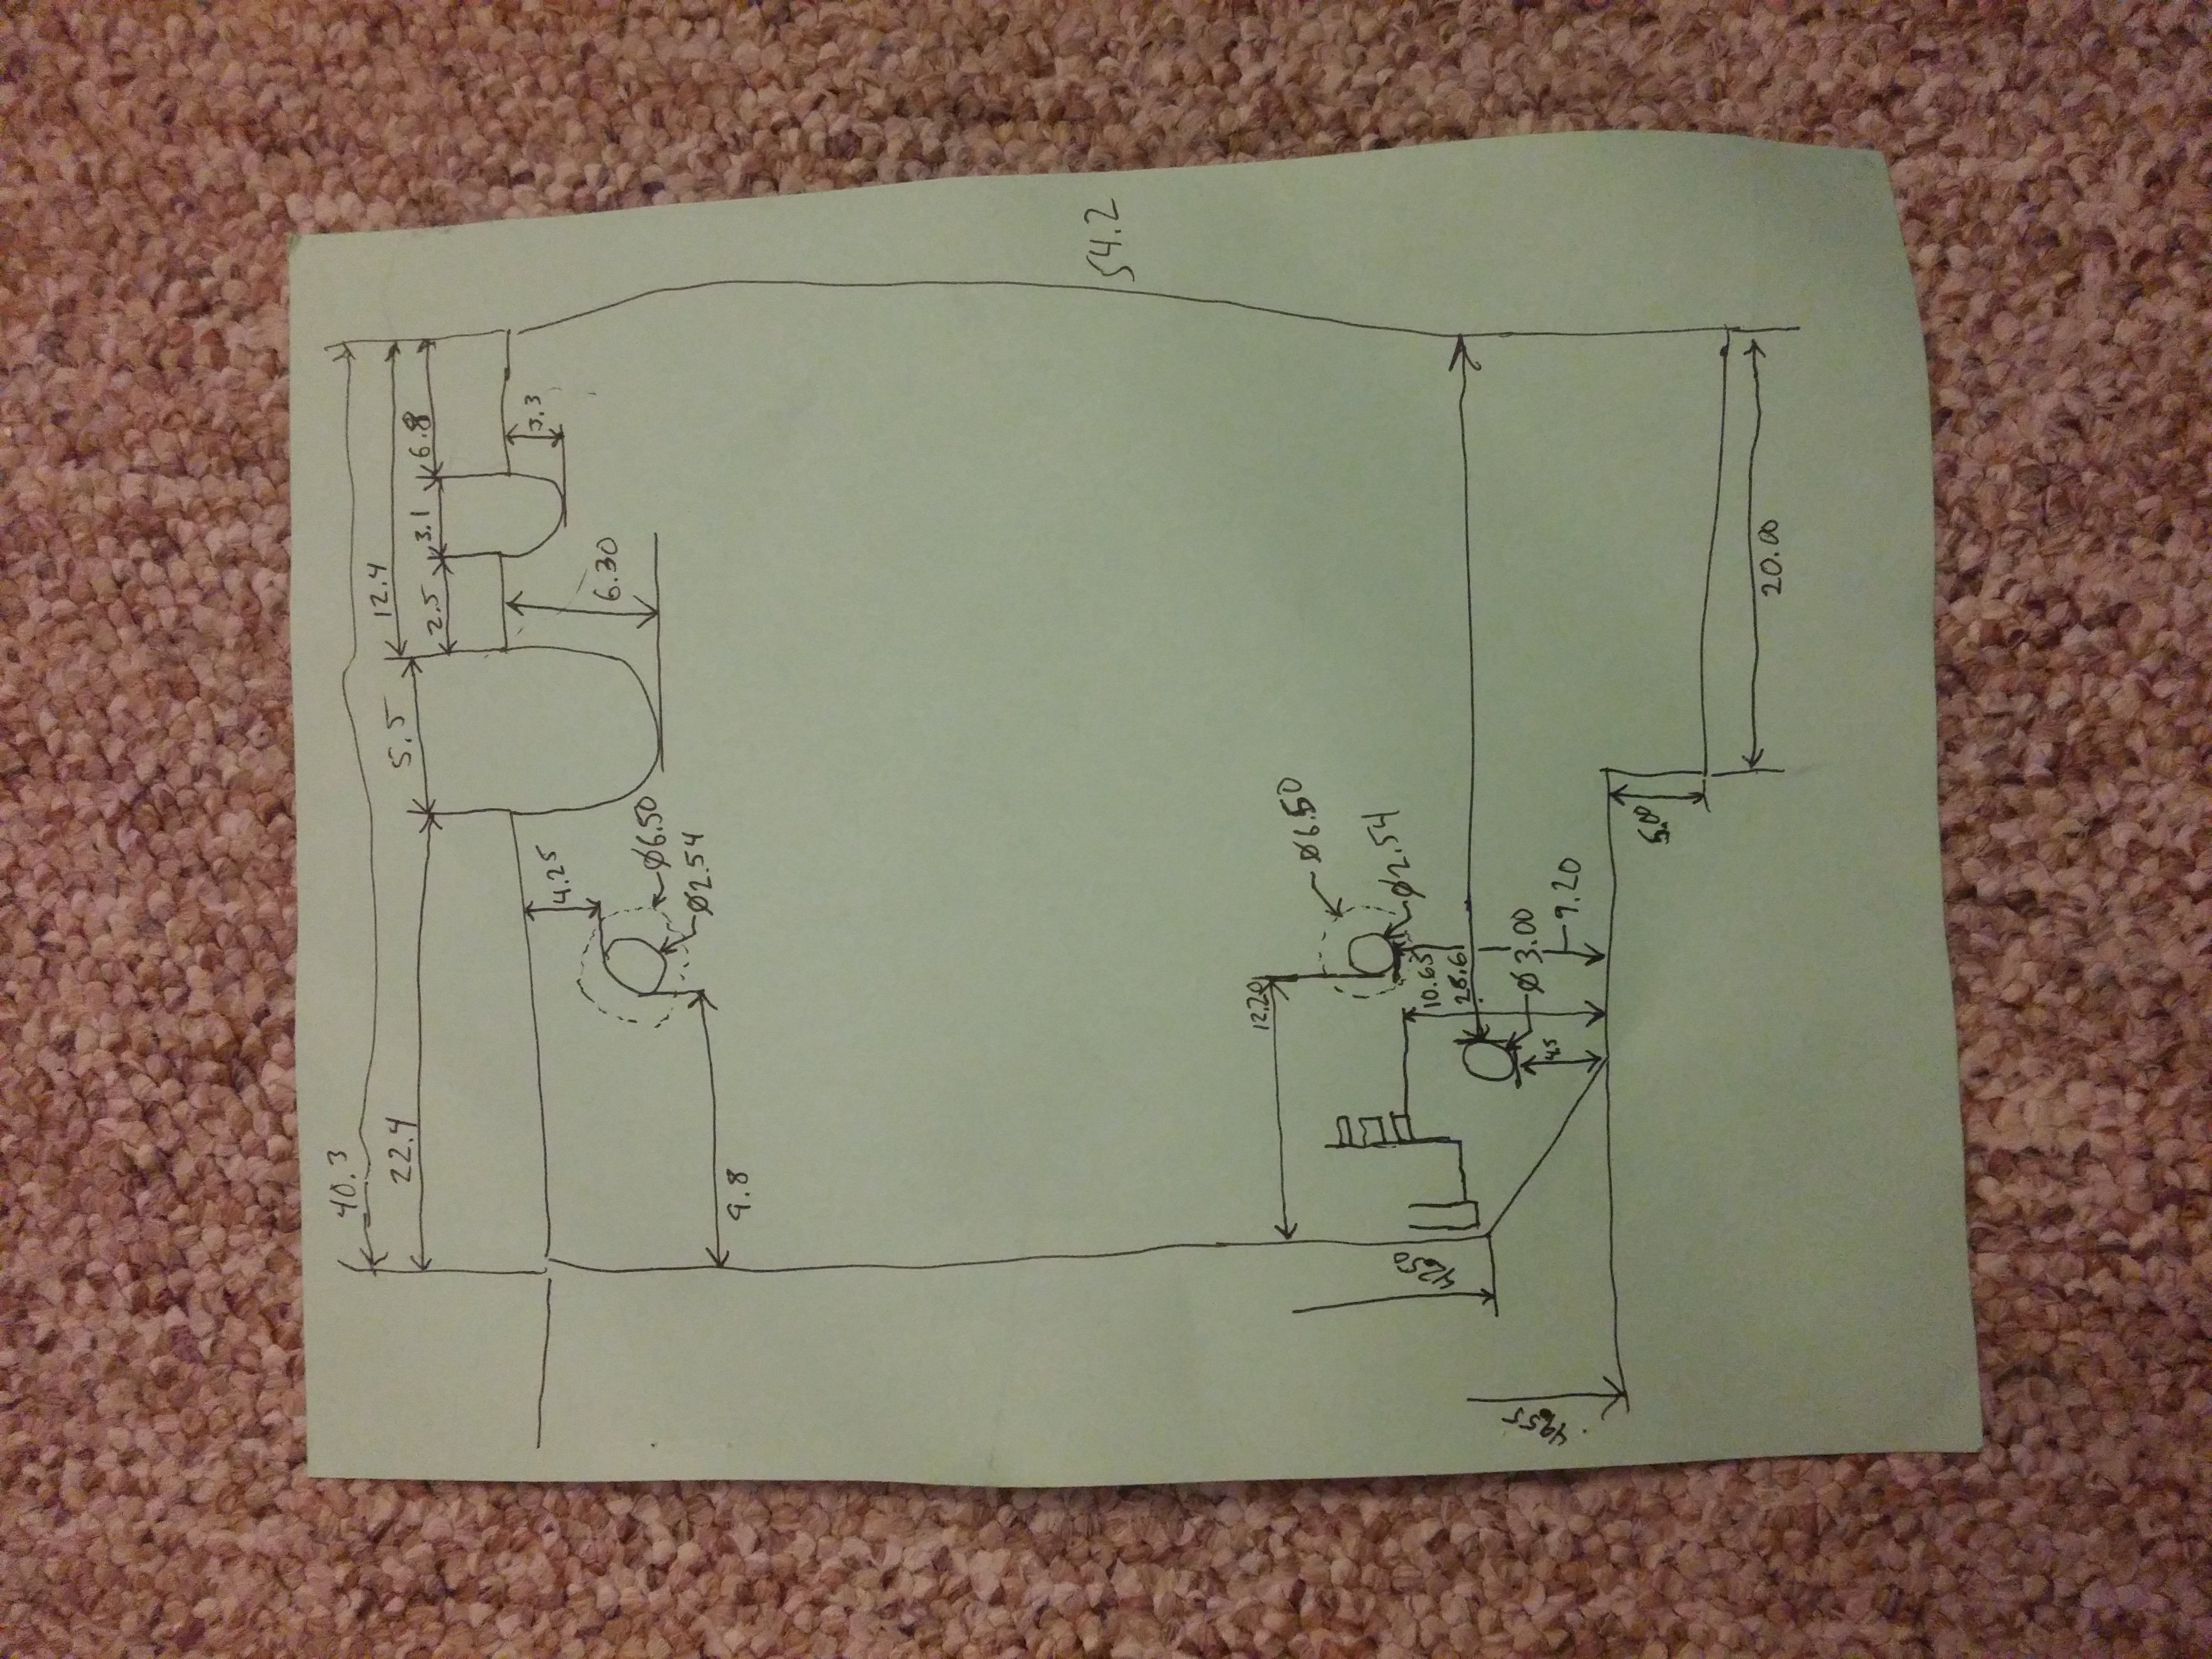 40.3
12.4
22.4
5.5
2.5
3.1
6.8
4.25
3.3
6.30
Ø6.50
Ø2.54
9.8
54.2
12.20
Ø6.50
Ø2.54
42.50
10.65
28.6
Ø3.00
4.5
9.20
49.55
5.00
20.00